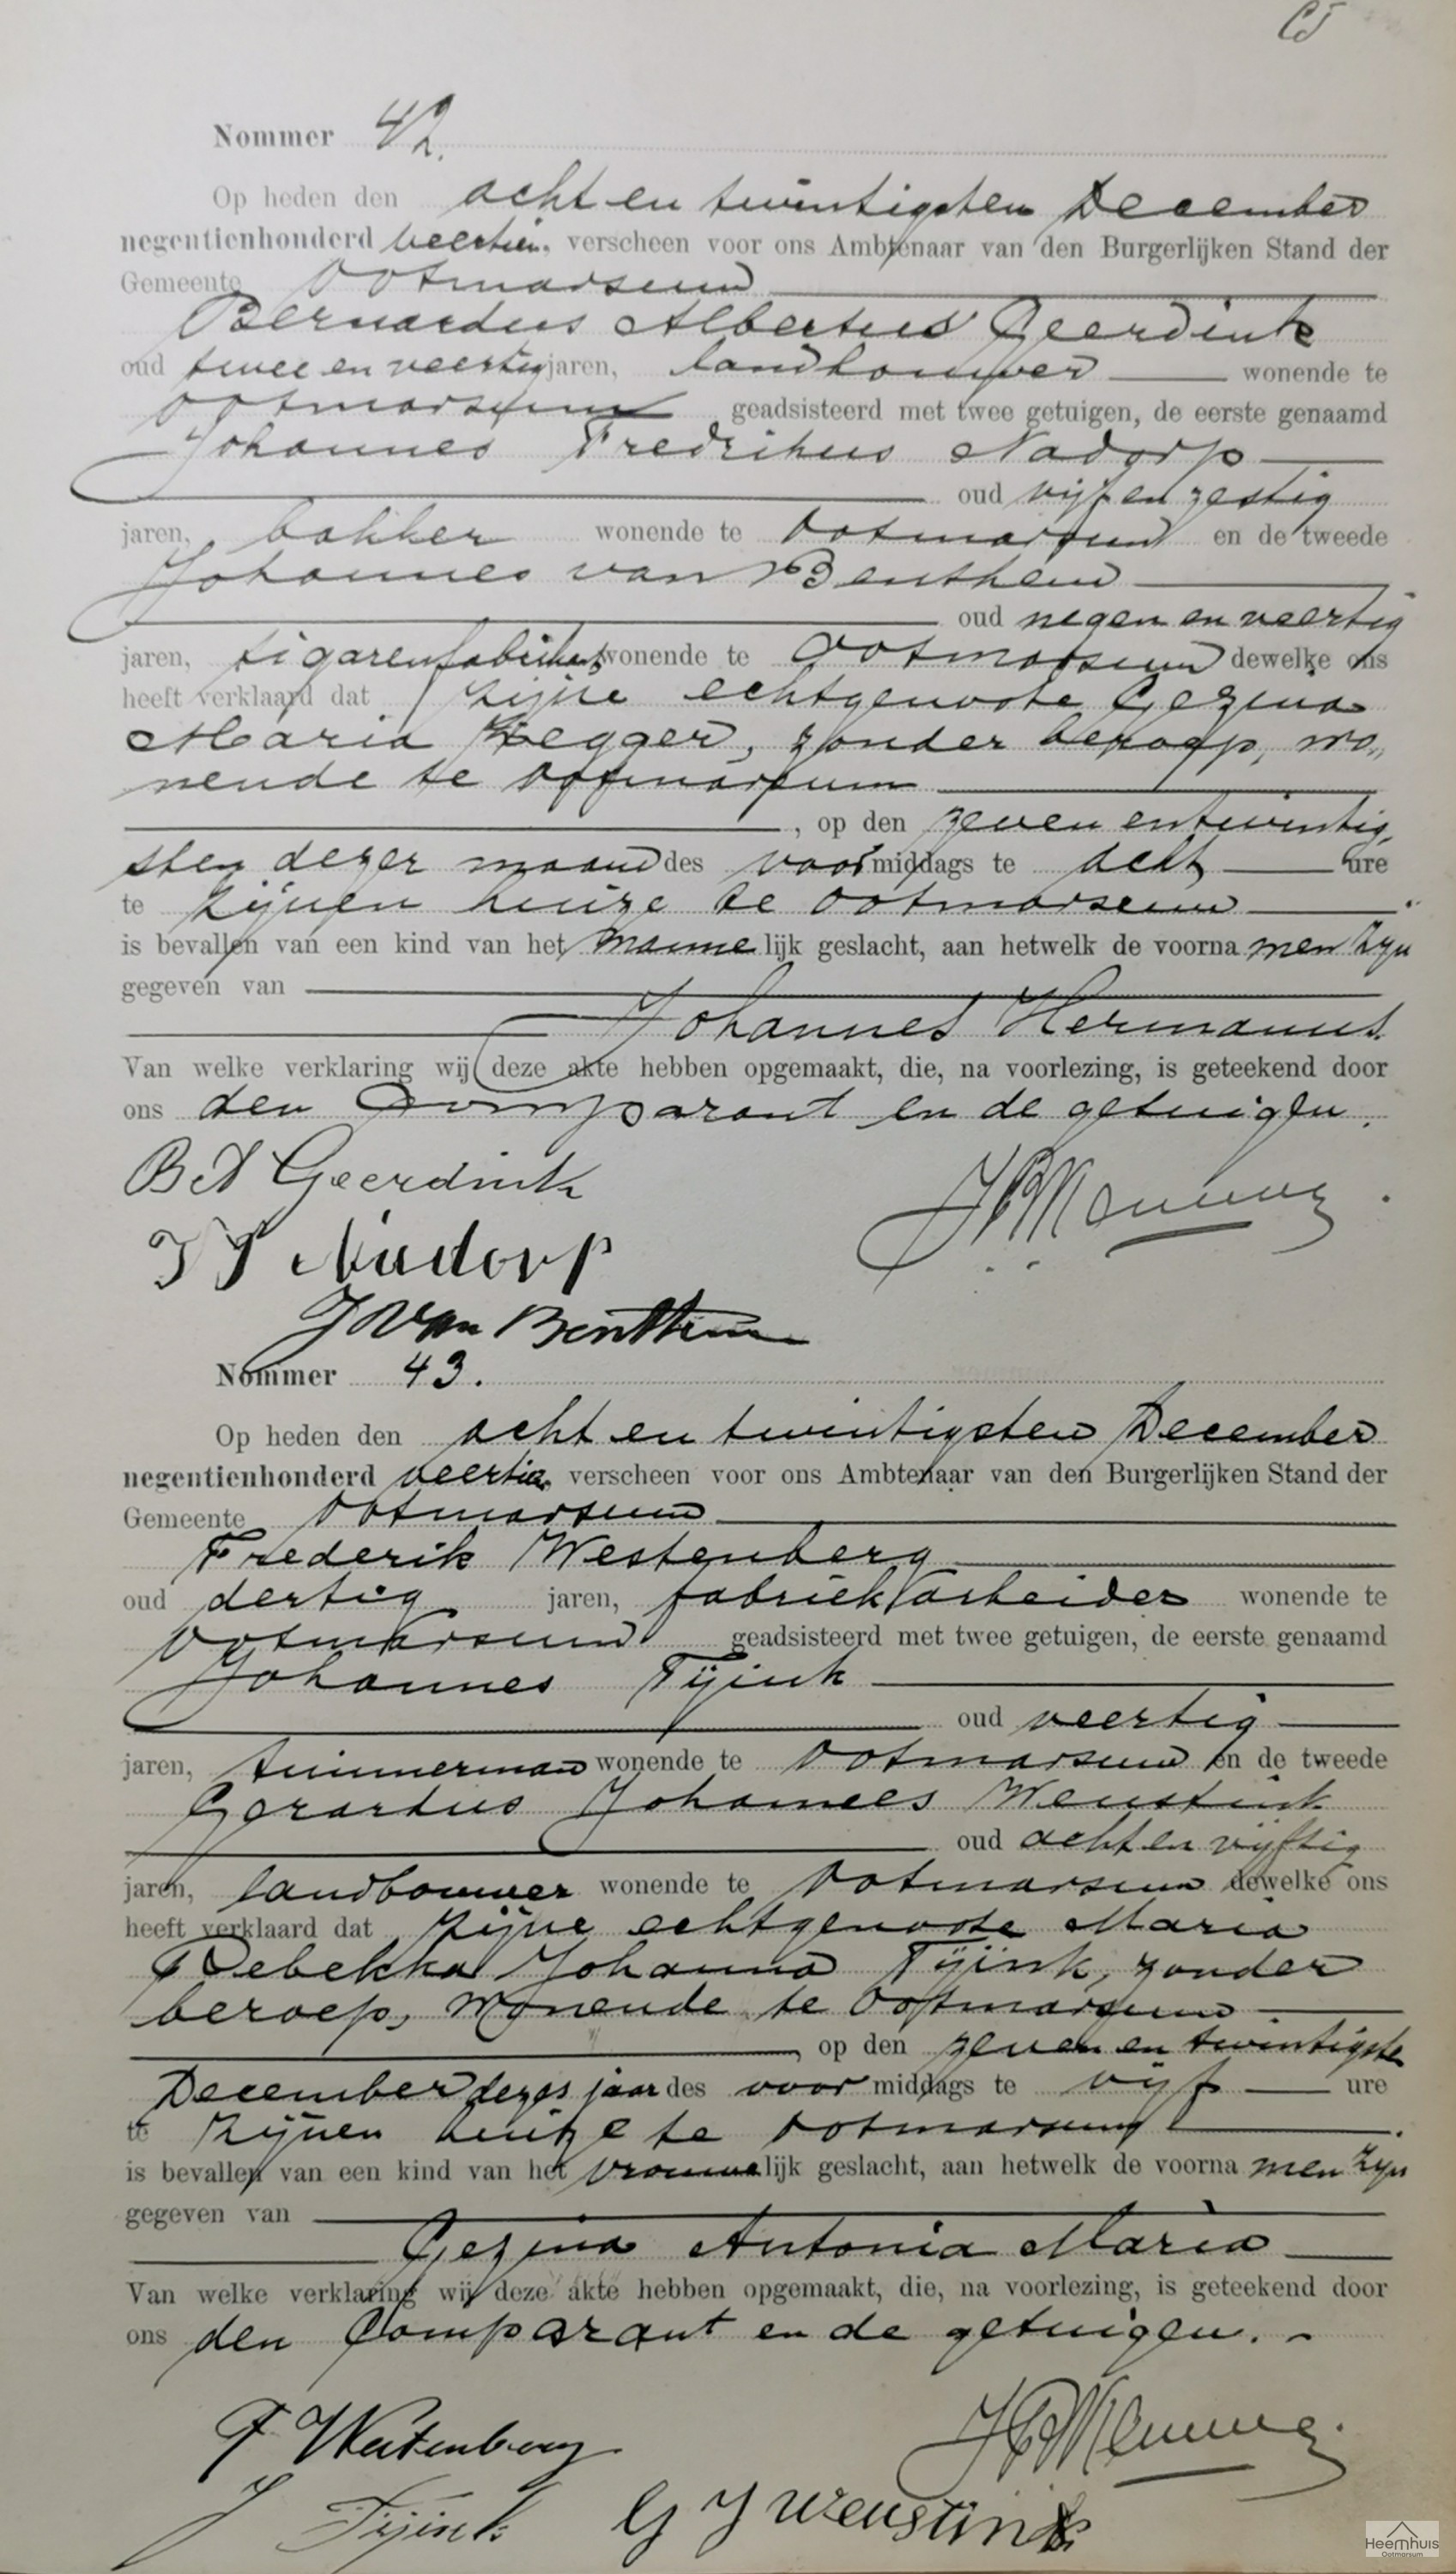 Nommer 42.
Op heden den acht en twintigsten December
negentienhonderd veertien, verscheen voor ons Ambtenaar van den Burgerlijken Stand der
Gemeente Ootmarsum
Bernardus Albertus Geerdink
oud twee en veertig jaren, landbouwer wonende te
Ootmarsum geadsisteerd met twee getuigen, de eerste genaamd
Johannes Fredrikus Nadorp
oud vijf en zestig
jaren, bakker wonende te Ootmarsum en de tweede
Johannes van Benthem
oud negen en veertig
jaren, sigarenfabrikant wonende te Ootmarsum dewelke ons
heeft verklaard dat zijne echtgenoote Gezina
Maria Zegger, zonder beroep, wo„
nende te Ootmarsum
, op den zeven en twintig„
sten dezer maand des voormiddags te acht ure
te zijnen huize te Ootmarsum
is bevallen van een kind van het mannelijk geslacht, aan hetwelk de voornamen zijn
gegeven van
Johannes Hermannus.
Van welke verklaring wij deze akte hebben opgemaakt, die, na voorlezing, is geteekend door
ons den Comparant en de getuigen.
B A Geerdink
J F Nadorp
J van Benthem
Nommer 43.
Op heden den acht en twintigsten December
negentienhonderd veertien, verscheen voor ons Ambtenaar van den Burgerlijken Stand der
Gemeente Ootmarsum
Frederik Westenberg
oud dertig jaren, fabriekarbeider wonende te
Ootmarsum geadsisteerd met twee getuigen, de eerste genaamd
Johannes Tijink
oud veertig
jaren, timmerman wonende te Ootmarsum en de tweede
Gerardus Johannes Weustink
oud acht en vijftig
jaren, landbouwer wonende te Ootmarsum dewelke ons
heeft verklaard dat zijne echtgenoote Maria
Rebekka Johanna Tijink, zonder
beroep, wonende te Ootmarsum
, op den zeven en twintigsten
December dezes jaar des voormiddags te vijf ure
te zijnen huize te Ootmarsum
is bevallen van een kind van het vrouwelijk geslacht, aan hetwelk de voornamen zijn
gegeven van
Gezina Antonia Maria
Van welke verklaring wij deze akte hebben opgemaakt, die, na voorlezing, is geteekend door
ons den Comparant en de getuigen.
F Westenberg
J Tijink
G J Weustink
Heemhuis
Ootmarsum